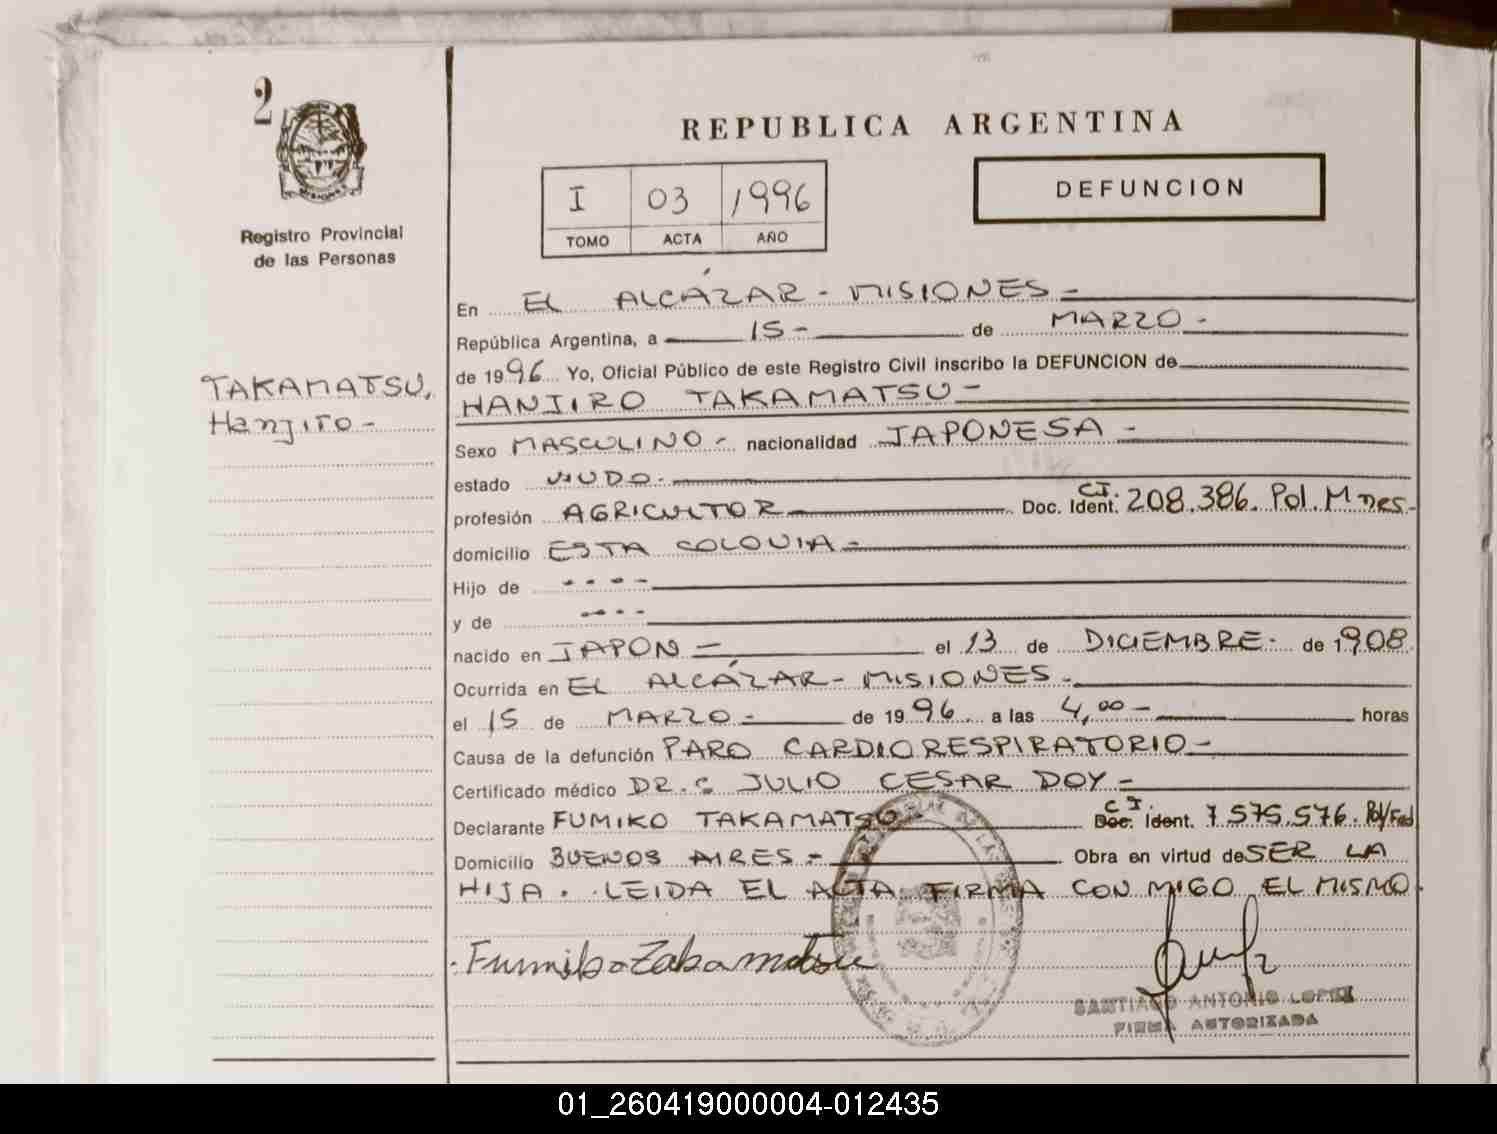 2
MISIONES
Registro Provincial
de las Personas
TAKAMATSU,
Hanjiro -
REPUBLICA ARGENTINA
I 03 1996
TOMO ACTA AÑO
DEFUNCION
En EL ALCÁZAR - MISIONES -
República Argentina, a 15 - de MARZO -
de 1996 Yo, Oficial Público de este Registro Civil inscribo la DEFUNCION de
HANJIRO TAKAMATSU -
Sexo MASCULINO - nacionalidad JAPONESA -
estado VIUDO -
C.I.
profesión AGRICULTOR Doc. Ident. 208.386. Pol. Mnes -
domicilio ESTA COLONIA -
Hijo de - - - -
y de - - - -
nacido en JAPON - el 13 de DICIEMBRE - de 1908
Ocurrida en EL ALCÁZAR - MISIONES -
el 15 de MARZO - de 1996 a las 4,00 - horas
Causa de la defunción PARO CARDIORESPIRATORIO -
Certificado médico DR. JULIO CESAR DOY -
C.I.
Declarante FUMIKO TAKAMATSU - Doc. Ident. 7.575.576. Pol/Fed
Domicilio BUENOS AIRES - Obra en virtud de SER LA
HIJA. LEIDA EL ACTA FIRMA CON MIGO EL MISMO
Fumiko Takamatsu
SANTIAGO ANTONIO LOPEZ
FIRMA AUTORIZADA
01_260419000004-012435